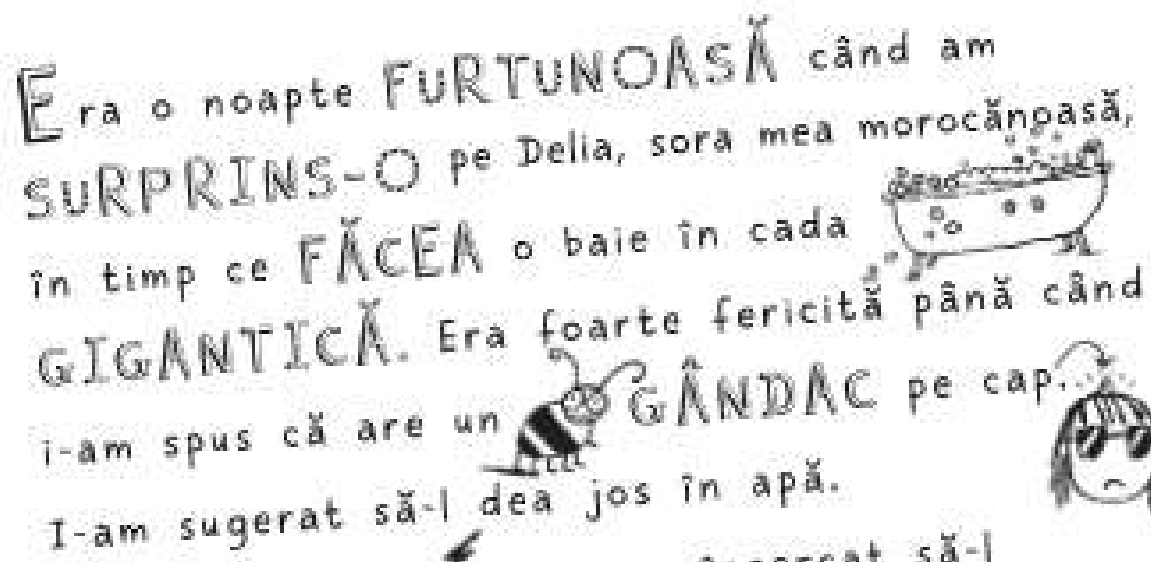 Era o noapte FURTUNOASĂ când am
SURPRINS-O pe Delia, sora mea morocănoasă,
în timp ce FĂCEA o baie în cada
GIGANTICĂ. Era foarte fericită până când
i-am spus că are un GÂNDAC pe cap...
I-am sugerat să-l dea jos în apă.
să-l